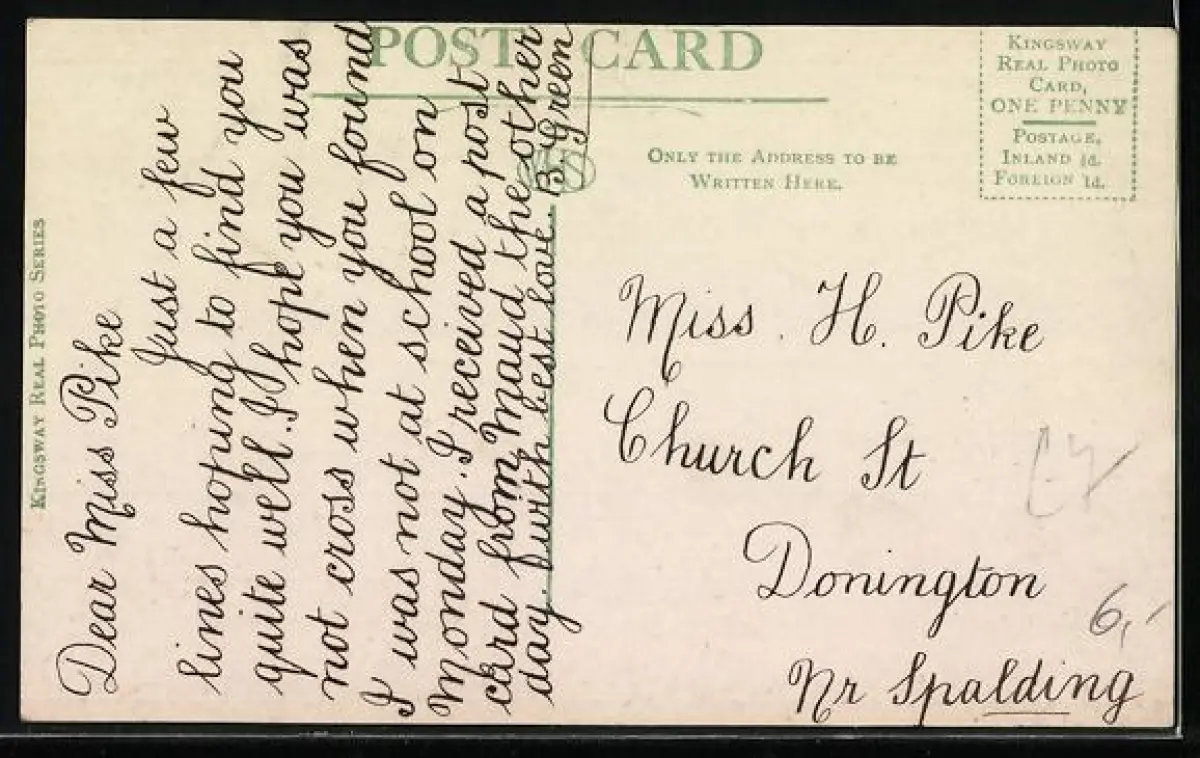 POST CARD
KINGSWAY
REAL PHOTO
CARD,
ONE PENNY
POSTAGE,
INLAND ½d.
FOREIGN 1d.
ONLY THE ADDRESS TO BE
WRITTEN HERE.
KINGSWAY REAL PHOTO SERIES
Dear Miss Pike
Just a few
lines hoping to find you
quite well. I hope you was
not cross when you found
I was not at school on
Monday. I received a post
card from Maud the other
day. with best love. B. Green
Miss. H. Pike
Church St
Donington
Nr Spalding
6,-